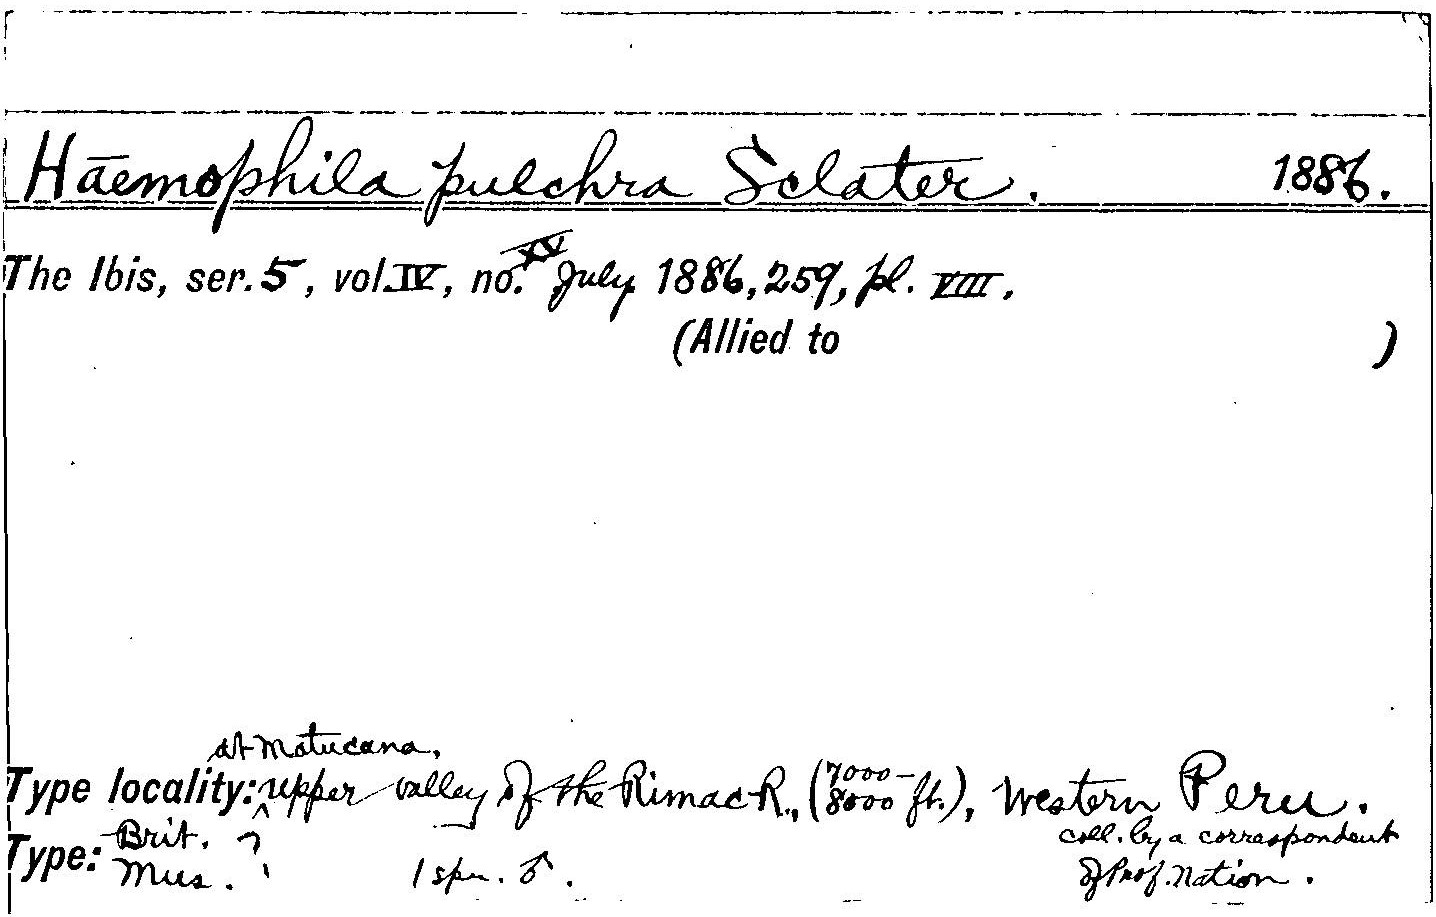 Haemophila pulchra Sclater. 1886.
The Ibis, ser. 5, vol. IV, no. XV July 1886, 259, pl. VIII.
(Allied to )
at Matucana,
Type locality: upper valley of the Rimac R., (7000-8000 ft.), Western Peru.
Type: Brit. Mus. ? 1 spn. ♂. coll. by a correspondent
of Prof. Nation.